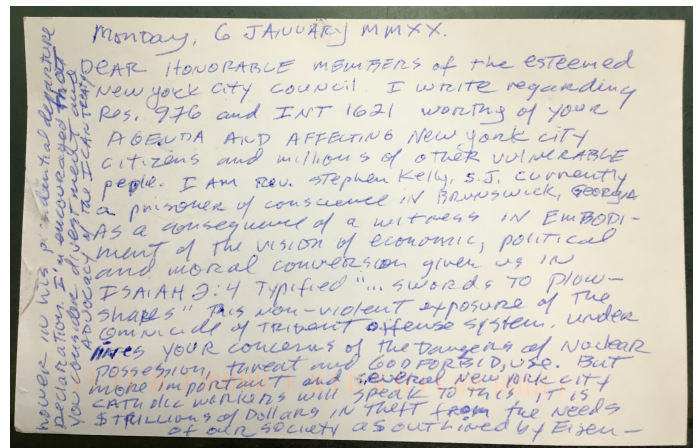 Monday, 6 JANUARY MMXX.
DEAR HONORABLE MEMBERS of the esteemed
New York City Council. I write regarding
Res. 976 and INT 1621 worthy of your
AGENDA AND AFFECTING New York city
citizens and millions of other vulnerable
people. I Am Rev. Stephen Kelly, S.J. currently
a prisoner of conscience in Brunswick, Georgia
As a consequence of a witness in Embodi-
ment of the vision of economic, political
and moral conversion given us in
ISAIAH 2:4 typified "... swords to plow-
shares" This non-violent exposure of the
omnicide of Trident offense system, under
lines your concerns of the Dangers of Nuclear
Possession, threat and GOD FORBID, use. But
more important and several New York city
Catholic workers will speak to this, it is
$ trillions of Dollars in theft from the needs
of our society as outlined by Eisen-
hower in his presidential departure
declaration. I'm encouraged that
you consider divestment and
ADVOCACY of the ICAN treaty